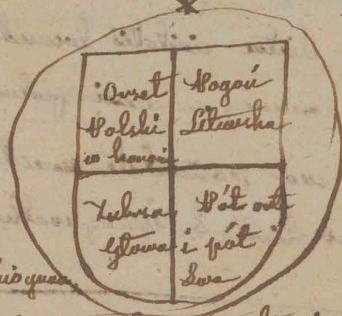 Orzeł
Polski
w koronie
Pogoń
Litewska
Żubrza
głowa
Pół orł
i pół
lwa